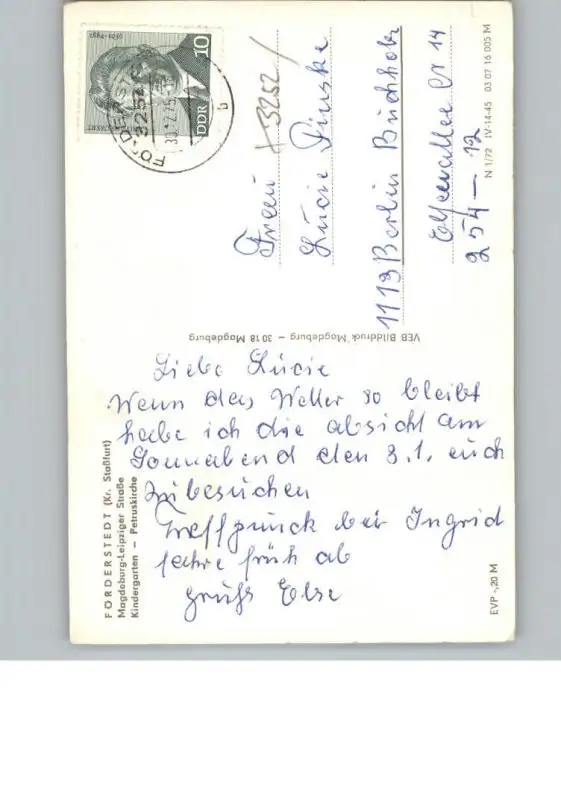 Liebe Lücie
Wenn das Wetter so bleibt
habe ich die absicht am
Sonnabend den 3.1. euch
zubesuchen
Treffpunck bei Ingrid
fahre früh ab
gruß Else
Frau
Lücie Pinske
1113 Berlin Buchholz
Elsenallee Nr 14
254 – 12
+3252/
FÖRDERSTEDT (Kr. Staßfurt)
Magdeburg-Leipziger Straße
Kindergarten – Petruskirche
VEB Bilddruck Magdeburg – 3018 Magdeburg
N 1/72 IV-14-45 03 07 16 005 M
EVP -,20 M
10
DDR
3252
b